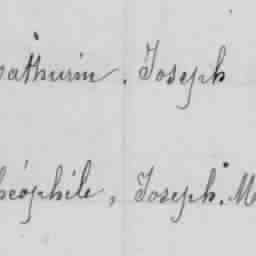 athurin, Joseph
héophile, Joseph. M